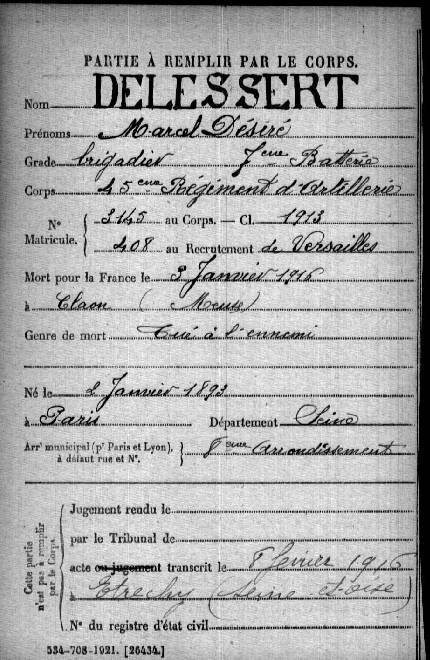 PARTIE À REMPLIR PAR LE CORPS.
Nom DELESSERT
Prénoms Marcel Désiré
Grade brigadier 7eme Batterie
Corps 45eme Régiment d'Artillerie
N° Matricule. { 3145 au Corps. — Cl. 1913
408 au Recrutement de Versailles
Mort pour la France le 3 Janvier 1916
à Claon (Meuse)
Genre de mort Tué à l'ennemi
Né le 2 Janvier 1893
à Paris Département Seine
Arrt municipal (pr Paris et Lyon), à défaut rue et N°. } 8eme Arrondissement
Cette partie n'est pas à remplir par le Corps.
Jugement rendu le
par le Tribunal de
acte ou jugement transcrit le 8 février 1916
à Etrechy (Seine-et-Oise)
N° du registre d'état civil
534-708-1921. [26434.]